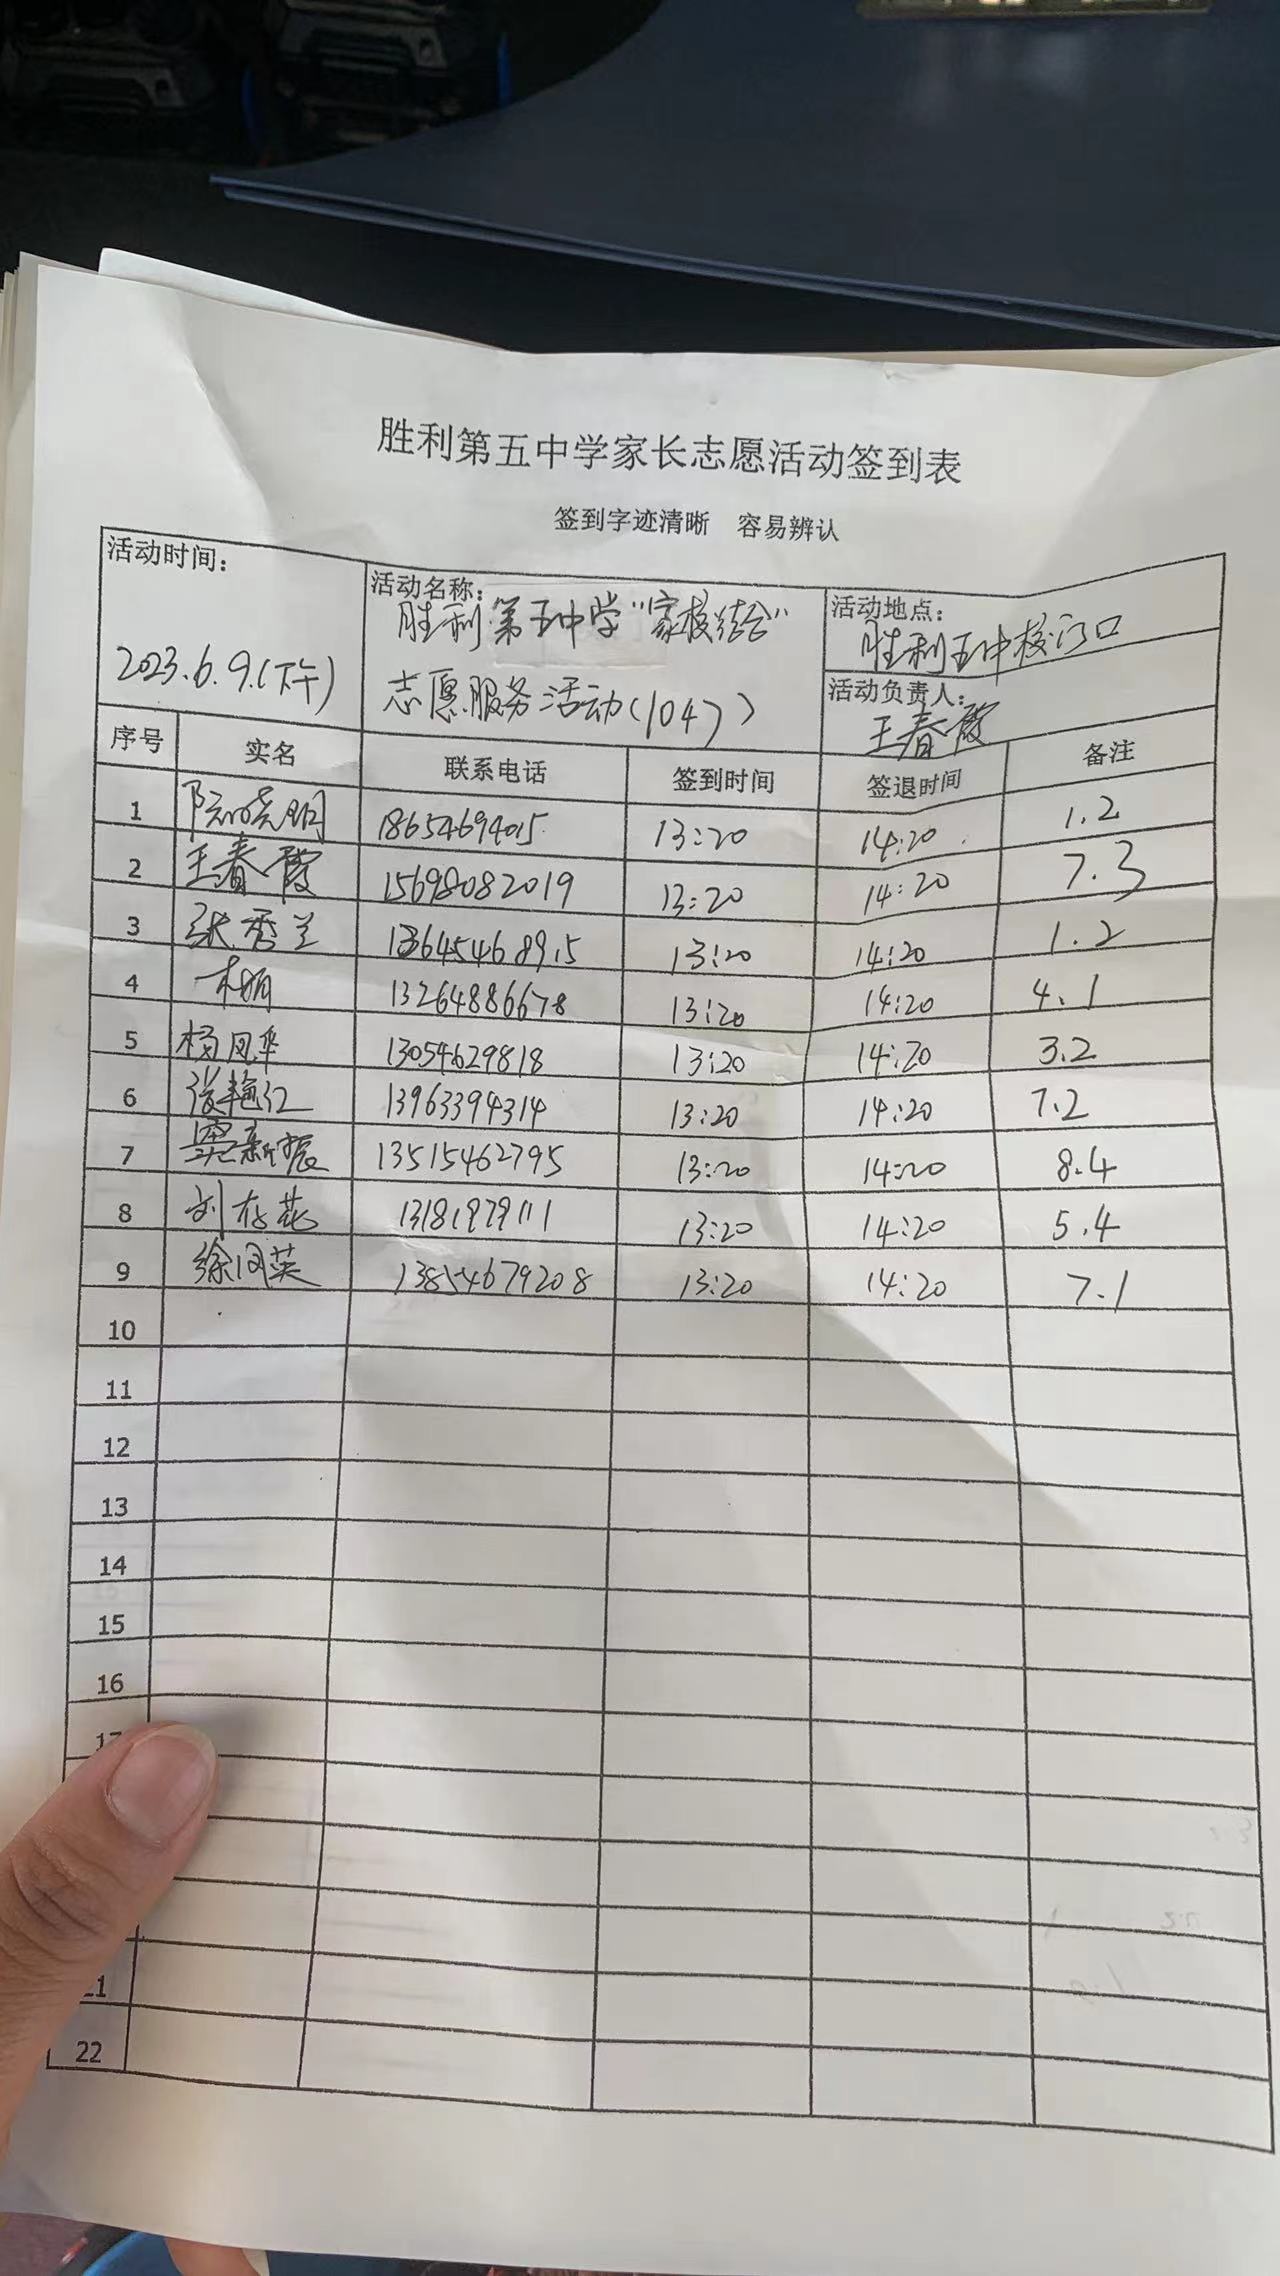 胜利第五中学家长志愿活动签到表
签到字迹清晰 容易辨认
活动时间: 2023.6.9.(下午)
活动名称: 胜利第五中学"家校结合"
志愿服务活动(1047)
活动地点: 胜利五中校门口
活动负责人: 王春霞
序号 实名 联系电话 签到时间 签退时间 备注
1 阮晓明 18654694015 13:20 14:20 1.2
2 王春霞 15698082019 13:20 14:20 7.3
3 张秀兰 13645468915 13:20 14:20 1.2
4 13264886678 13:20 14:20 4.1
5 杨凤华 13054629818 13:20 14:20 3.2
6 张艳红 13963394314 13:20 14:20 7.2
7 13515462795 13:20 14:20 8.4
8 刘存花 13181979111 13:20 14:20 5.4
9 徐同英 13854679208 13:20 14:20 7.1
10
11
12
13
14
15
16
17
21
22